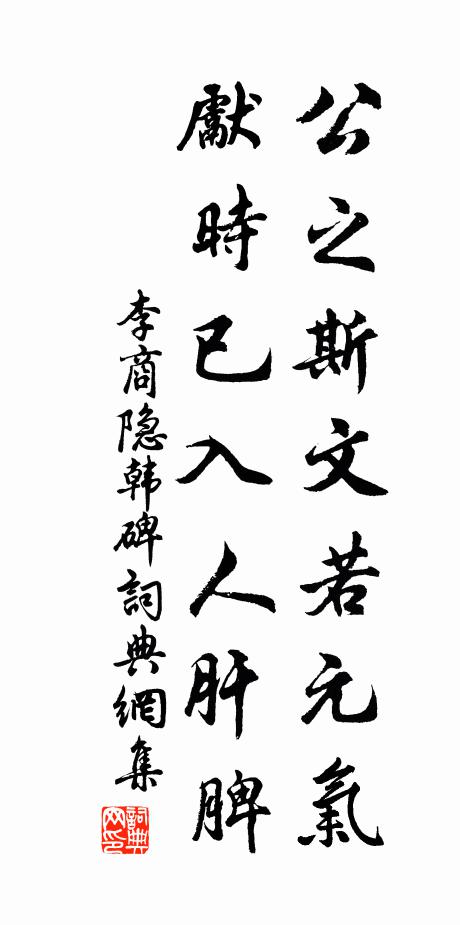 公之斯文若元氣
獻時已入人肝脾
李商隐韩碑詞典網集
詞典网印